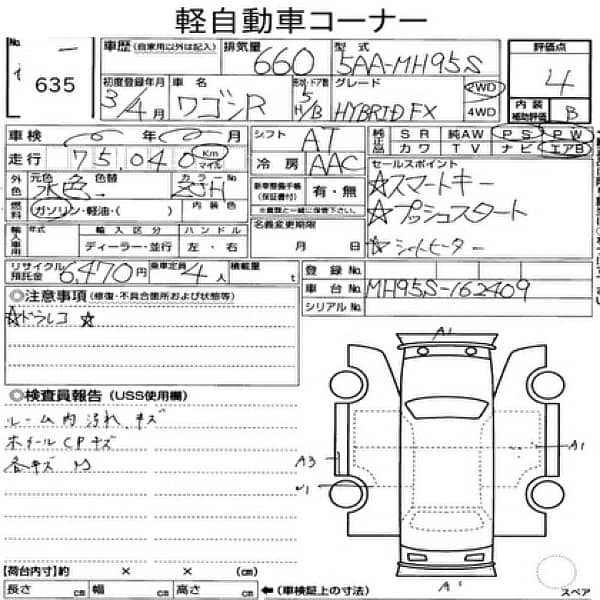 軽自動車コーナー
No.
635
車歴 (自家用以外は記入)
排気量
660
型式
5AA-MH95S
評価点
4
内装
補助評価
B
初度登録年月
3/4月
車名
ワゴンR
形状・ドア数
5
H/B
グレード
HYBRID FX
2WD
4WD
車検
年
月
シフト
AT
純正品
SR
純AW
PS
PW
カワ
TV
ナビ
エアB
走行
75,040
Km
マイル
冷房
AAC
セールスポイント
☆スマートキー
☆プッシュスタート
☆シートヒーター
外色
元色
水色
色替
カラーNo.
ZJH
燃料
ガソリン・軽油・( )
内装色
新車整備手帳
(保証書付)
有・無
※書類と一緒に保管下さい。
名義変更期限
月 日
輸入車用
年式
輸入区分
ディーラー・並行
ハンドル
左・右
リサイクル
預託金
6,470円
乗車定員
4人
積載量
t
登録No.
車台No.
MH95S-162409
シリアルNo.
◎注意事項 (修復・不具合箇所および状態等)
☆ドラレコ ☆
◎検査員報告 (USS使用欄)
ルーム内汚れ、キズ
ホイールCPキズ
各キズ
A1
A3
A1
A1
【荷台内寸】約 × × (cm)
長さ cm 幅 cm 高さ cm
← (車検証上の寸法)
スペア